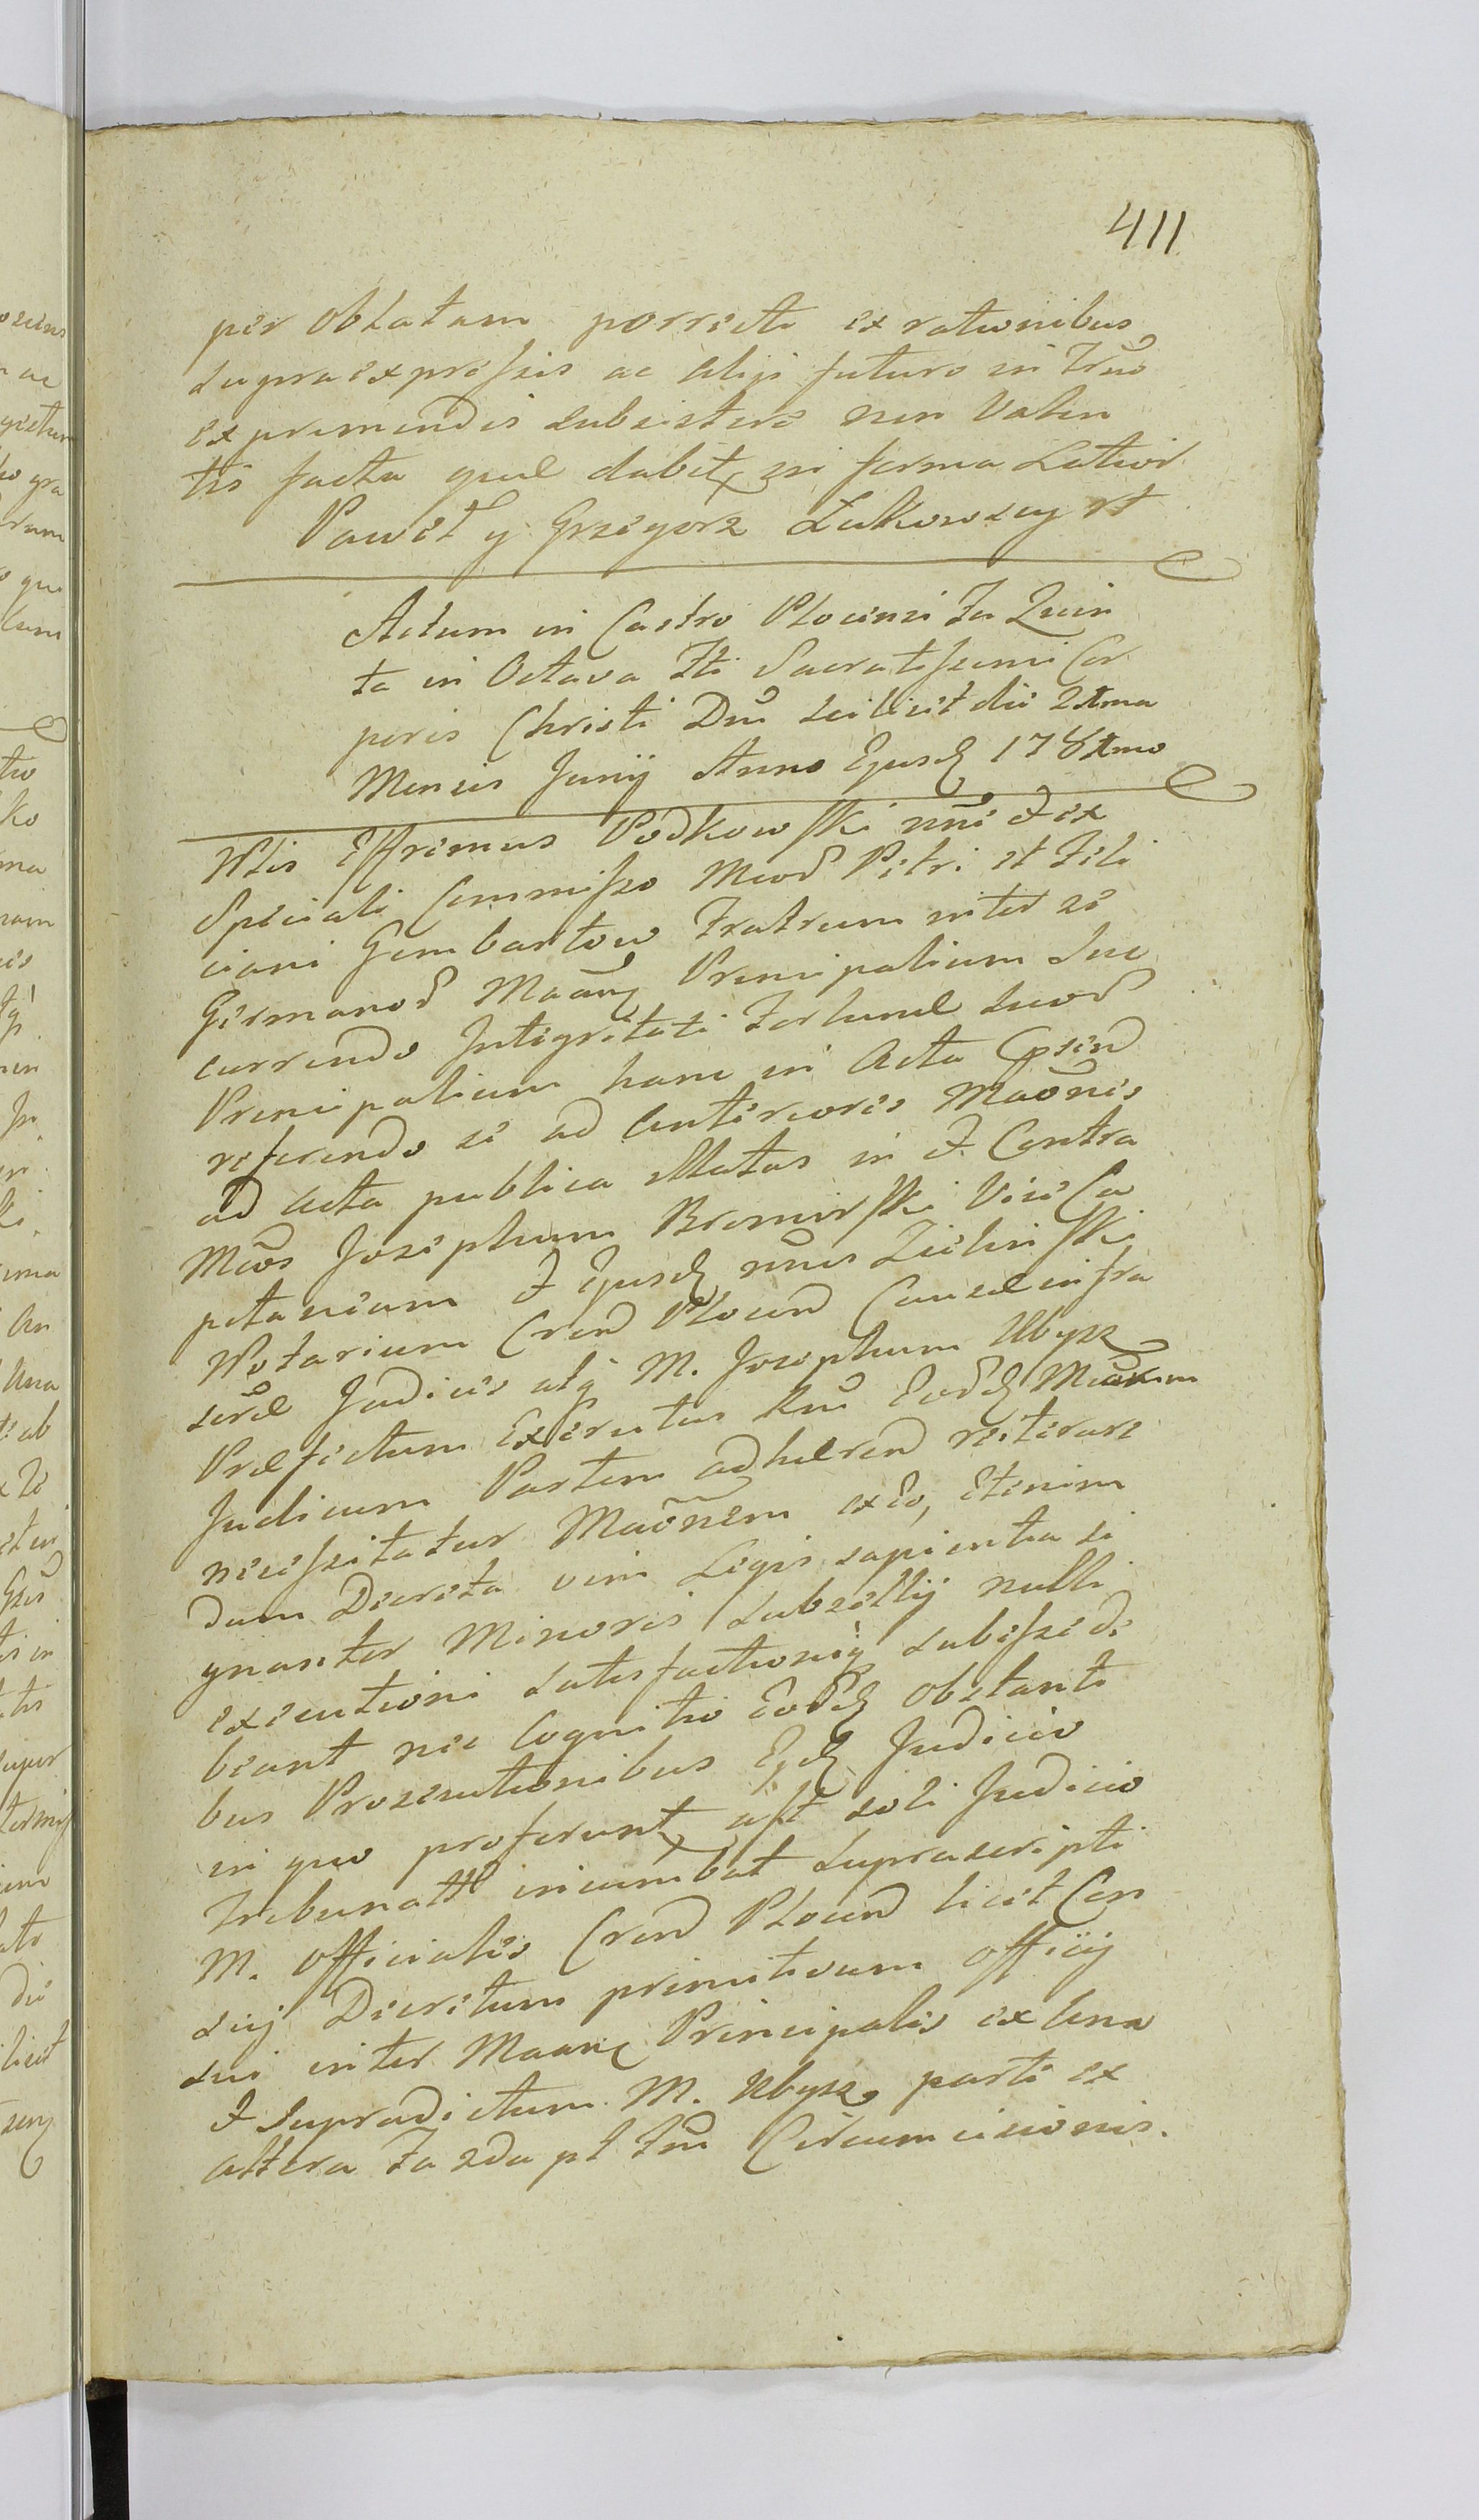 411
per oblatam porrecti ex rationibus
supra expressis ac alijs futuro in Trno
exprimendis subsistere non valen
tis facta quae dabit in forma Latior
Paweł y Grzegorz Łukowscy
Actum in Castro Plocensi Fa Quin
ta in Octava Fti Sacratissimi Cor
poris Christi Dni scilicet die 21ma
Mensis Junij Anno Ejusd 1781mo
Nlis Effremus Podkowski nne & ex
Speciali Commisso Mcor Petri et Feli
ciani Gembartow Fratrum inter se
Germanor Maan Principalium Suc
currendo Integritati Fortunae suor
Principalium hanc in Acta Cpsend
referendo se ad anteriores Maones
ad Acta publica illatas in & Contra
Mcos Josephum Bromirski Vice Ca
pitaneum & Ejusd nnis Zielinski
Notarium Cren Plocen Causae infra
scrae Judices atq M. Josephum Ubysz
Praefectum Exercitus Rni Eod Mcorum
Judicum Partem adhaeren reiterare
necessitatur Maonem ex Eo, Etenim
dum Decreta vim Legis sapientia si
gnanter Minoris Subsellij nulli
executioni satisfactioniq subesse de
beant nec Cognitio Eod obstanti
bus Prosecutionibus Ejd Judicio
in quo proferunt ast soli Judicio
Tribunatt incumbat suprascripti
M. Officiales Cren Plocen licet Con
scij Decretum primitivum Officij
sui inter Maan Principales ex Una
& supradictum M. Ubysz parte ex
altera Fa 2da pt Ftu Circumcisionis.